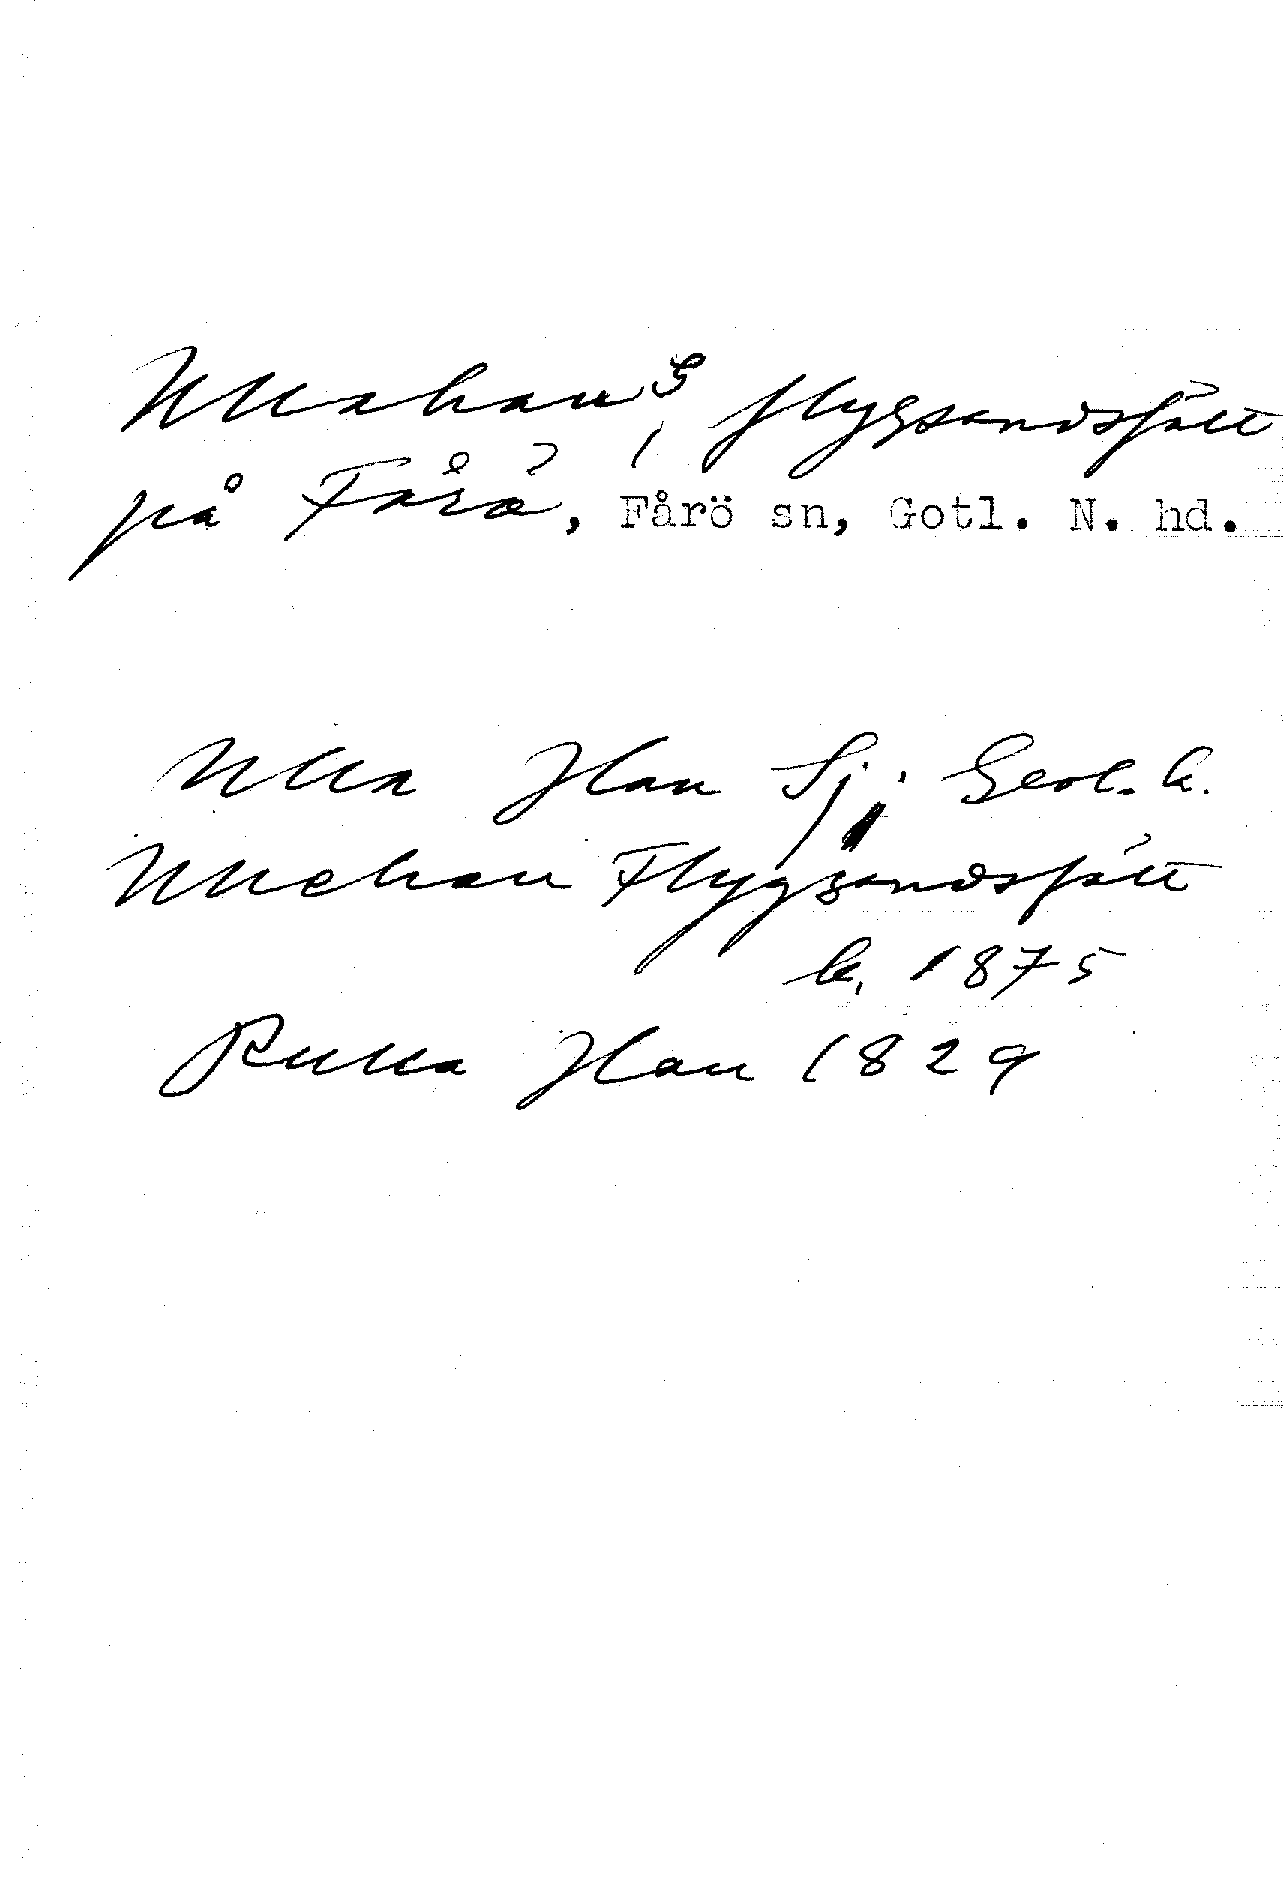 Ullahau, flygsandsfält
på Fårö, Fårö sn, Gotl. N. hd.
Ulla Hau Sj. Geol. k.
Ullehau Flygsandsfält
k. 1875
Rulla Hau 1829